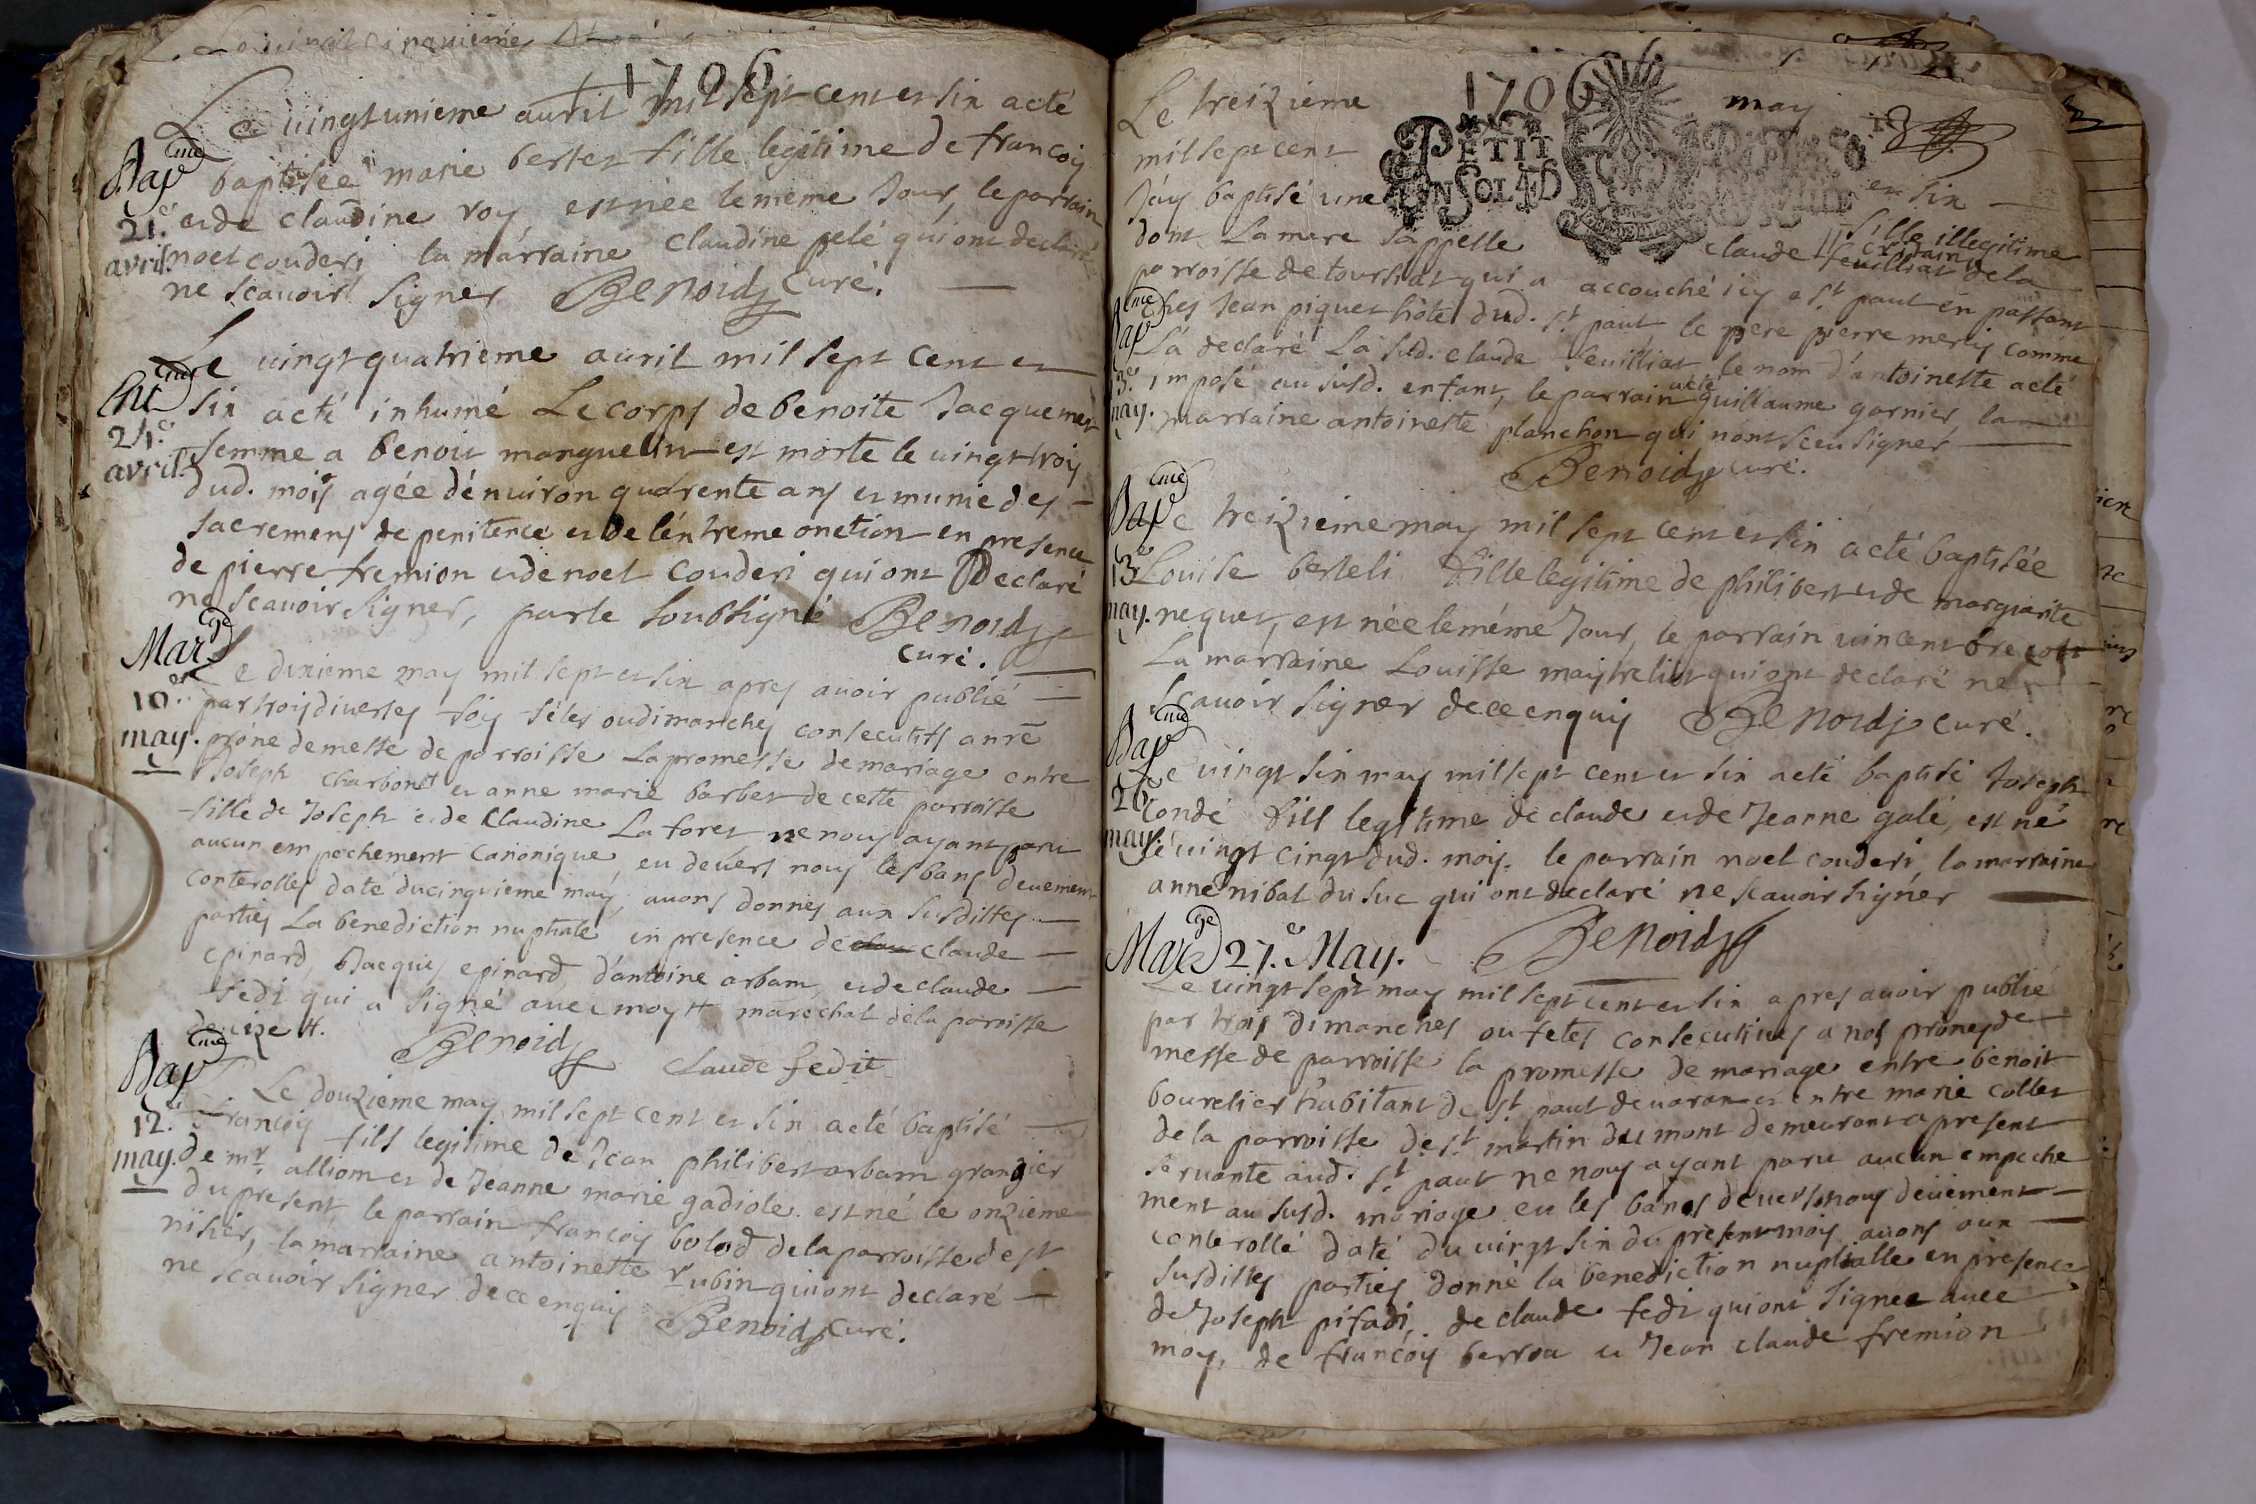 1706
Le vingtunieme avril mil sept cent et six a eté
Bap^me
baptisée marie berter fille legitime de françois
21.e
et de claudine roy est née le meme Jour, le parrain
avril.
noel couderi la marraine Claudine pelé qui ont declaré
ne scavoir signer Benoid Curé.
Le vingt quatrieme avril mil sept cent et
six a eté inhumé Le corps de benoite Jacquemet
24.e
femme a benoit manguelin est morte le vingt trois
avril.
dud. mois agée d'environ quarente ans et munie des
sacremens de penitence et de l'extreme onction en presence
de pierre fremion et de noel couderi qui ont Declaré
ne scavoir signer, par le soubsigné Benoid
curé.
Mar^ge
Le dixieme may mil sept et six apres avoir publié
10.e
par trois diverses fois fétes ou dimanches consecutifs a nre
may.
prône de messe de parroisse La promesse de mariage entre
Joseph Charbonet et anne marie barbet de cette parroisse
fille de Joseph et de Claudine La foret ne nous ayant paru
aucun empechement Canonique, eu devers nous les bans deuement
conterolles daté du cinquieme may, avons donnes aux susdittes
parties La benediction nuptiale en presence de claude
epinard, Jacques epinard, d'antoine arbam et de claude
fedi qui a signé avec moy # marechal de la paroisse
de vize #.
Benoid Claude fedit
Bap^me
Le douzieme may mil sept cent et six a eté baptisé
12.e
françois fils legitime de Jean philibert arbam granger
may.
de m^r alliom et de Jeanne marie gadiole est né le onzieme
du present le parrain françois bolod de la parroisse de s^t
nisier, la marraine antoinette rubin qui ont declaré
ne scavoir signer de ce enquis Benoid Curé.
1706
may
Le treizieme
mil sept cent
et six
PETIT
UN SOL 4 D
J'ay baptisé une fille illegitime
dont La mere s'appelle claude feuillias de la
parroisse de toursias qui a accouché icy a s^t paul en passant
Bap^me
ches Jean piquet hôte dud. s^t paul le pere pierre meris comme
L'a declaré La sud. claude feuillias le nom d'antoinette a eté
13.e
imposé au susd. enfant, le parrain a eté guillaume garnier, la
may.
marraine antoinette planchon qui n'ont sceu signer
Benoid curé.
Bap^me
Le treizieme may mil sept cent et six a eté baptisée
13.e
Louise berteli fille legitime de philibert et de marguerite
may.
nequet, est née le méme Jour, le parrain vincent
La marraine Louisse maytrelin qui ont declaré ne
scavoir signer de ce enquis Benoid curé.
Bap^me
Le vingt six may mil sept cent et six a eté baptisé Joseph
26.e
condé fils legitime de claude et de Jeanne galé, est né
may.
le vingt cinqt dud. mois. le parrain noel couderi, la marraine
anne nibat du suc qui ont declaré ne scavoir signer
Mar^ge 27.e May.
Benoid
Le vingt sept may mil sept cent et six apres avoir publié
par trois dimanches ou fetes consecutives a nos prones de
messe de parroisse la promesse de mariage entre benoit
bourelier habitant de s^t paul de varan et entre marie collet
de la parroisse de s^t martin du mont demeurant a present
servante aud. s^t paul ne nous ayant paru aucun empeche
ment au susd. mariage eu les bans devers nous deüement
conterollé daté du vingt six du present mois avons aux
susdittes parties donné la benediction nuptialle en presence
de Joseph pifadi, de claude fedi qui ont signee avec
moy, de françois berrou et Jean claude fremion